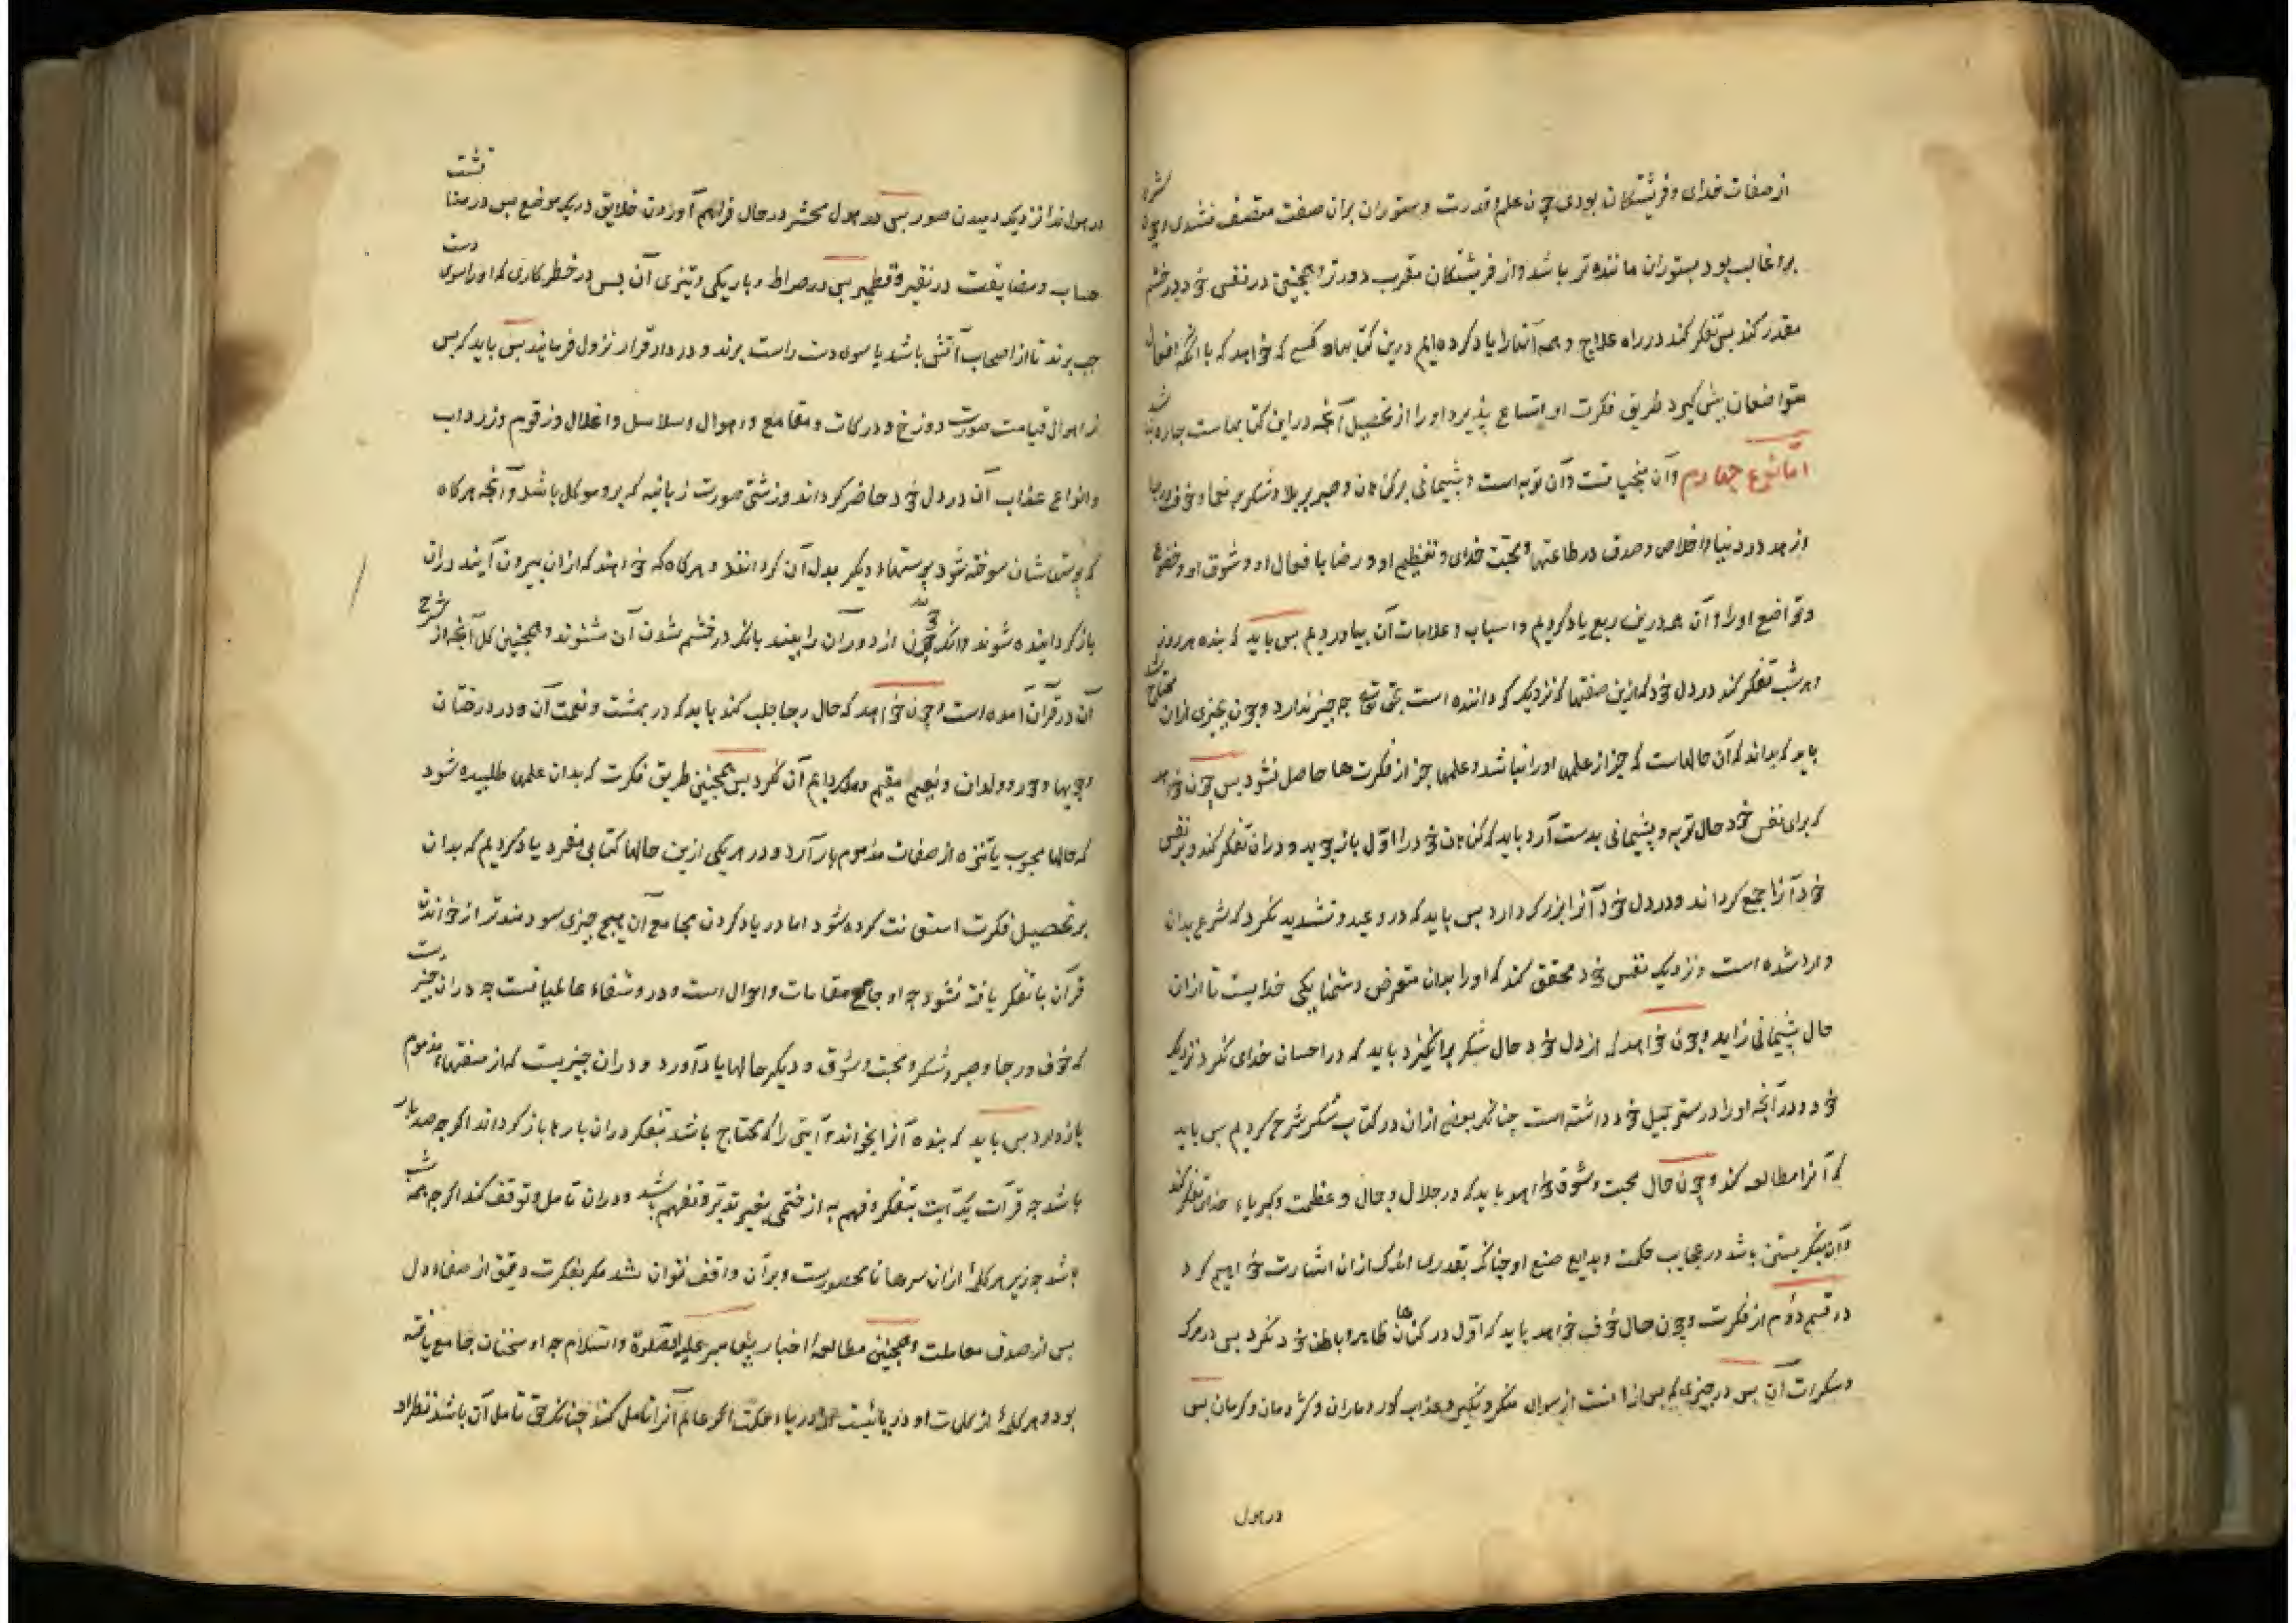 از صفات خدای و فریشتگان بودی چون علم و قدرت و ستوران بران صفت متصف نشدی و چون شره
برو غالب بود بستوران ماننده تر باشد و از فریشتگان مقرب دورتر و همچنین در نفس خود در خشم
مقدر کند بس تفکر کند در راه علاج و همه آنها را یاد کرده‌ایم درین کتابها و کسی که خواهد که با آنکه افعال
متواضعان پیش گیرد طریق فکرت او اتساع پذیرد او را از تحصیل آنچه در این کتابهاست چاره نباشد
اما نوع چهارم و آن منجیاتست و آن توبه است و پشیمانی بر گناهان و صبر بر بلا و شکر بر نعما و خوف و رجا
از هد در دنیا و اخلاص و صدق در طاعتها و محبت خدای و تعظیم او و رضا بافعال او و شوق او و خضوع
و تواضع او را و آن همه درین ربع یاد کردیم و اسباب و علامات آن بیاوردیم بس باید که بنده هر روز
و هر شب تفکر کند در دل خود که ازین صفتها که نزدیک گرداننده است بحق تعالی چه چیز ندارد و چون بچیزی ازان محتاج شد
باید که بداند که آن حالهاست که جز از علمها او را نباشد و علمها جز از فکرت‌ها حاصل نشود بس چون خواهد
که برای نفس خود حال توبه و پشیمانی بدست آرد باید که گناهان خود را اول باز جوید و دران تفکر کند و بر نفس
خود آنرا جمع گرداند و در دل خود آنرا بزرک گرداند بس باید که در وعید و تشدید نکرد که شرع بدان
وارد شده است و نزدیک نفس خود محقق کند که او را بدان متعرض دشمنایکی خدایست تا ازان
حال پشیمانی زاید و چون خواهد که از دل خود حال شکر برانگیزد باید که در احسان خدای نکرد نزدیک
خود و در آنچه او را در ستر جمیل خود داشته است چنانکه بعضی ازان در کتاب شکر شرح کردیم بس باید
که آنرا مطالعه کند و چون حال محبت و شوق خواهد باید که در جلال و جمال و عظمت و کبریاء خدای تفکر کند
و آن بنکریستن باشد در عجایب حکمت و بدایع صنع او چنانکه بقدری اندک ازان اشارت خواهیم کرد
در قسم دوم از فکرت و چون حال خوف خواهد باید که اول در گناهان ظاهر و باطن خود نکرد بس در مرک
و سکرات آن بس در چیزی که بس از انست از سوال منکر و نکیر و عذاب کور و ماران و کژدمان و کرمان بس
در هول
در هول ندا نزدیک دمیدن صور بس در هول محشر در حال فراهم آوردن خلایق در یک موضع بس در مناقشت
حساب و مضایقت در نقیر و قطمیر بس در صراط و باریکی و تیزی آن بس در خطر کاری که او را سوی دست
چب برند تا از اصحاب آتش باشد یا سوی دست راست برند و در دار قرار نزول فرمایند بس باید که بس
از اهوال قیامت صورت دوزخ و درکات و مقامع و اهوال و سلاسل و اغلال و زقوم و زرداب
و انواع عذاب آن در دل خود حاضر گرداند و زشتی صورت زبانیه که برو موکل باشد و آنچه هر گاه
که پوستهاشان سوخته شود پوستهاء دیگر بدل آن گردانند و هر گاه که خواهند که ازان بیرون آیند دران
باز گردانیده شوند و آنکه چون از دور آن را بینند بانک در خشم شدن آن شنوند و همچنین کل آنچه از شرح
آن در قرآن آمده است و چون خواهد که حال رجا جلب کند باید که در بهشت و نعمت آن و در درختان
و جویها و حور و ولدان و نعیم مقیم و ملک دایم آن نکرد بس همچنین طریق فکرت که بدان علمها طلبیده شود
که حالها محبوب یا تنزه از صفات مذموم بار آرد و در هر یکی ازین حالها کتابی مفرد یاد کردیم که بدان
بر تحصیل فکرت استعانت کرده شود اما در یاد کردن مجامع آن هیچ چیزی سودمندتر از خواندن
قرآن با تفکر یافته نشود چه او جامع مقامات و احوال است و درو شفاء عالمیانست چه دران چیزیست
که خوف و رجا و صبر و شکر و محبت و شوق و دیگر حالها یاد آورد و دران چیزیست که از صفتهاء مذموم
باز دارد بس باید که بنده آنرا بخواند و آیتی را که محتاج باشد بتفکر دران بارها باز گرداند اگر چه صد بار
باشد چه قرآت یک آیت بتفکر و فهم به از ختمی بغیر تدبر و تفهم باشد و دران تامل و توقف کند اگر چه همه شب
باشد چه زیر هر کلمۀ ازان سرهاء نامحصورست و بر آن واقف نتوان شد مکر بفکرت دقیق از صفاء دل
بس از صدق معاملت و همچنین مطالعۀ اخبار پیغامبر علیه الصلوة والسلام چه او سخنان جامع یافته
بود و هر کلمۀ از کلمات او دریائیست از دریاء حکمت اگر عالم آنرا تامل کند چنانکه حق تامل آن باشد نظر او